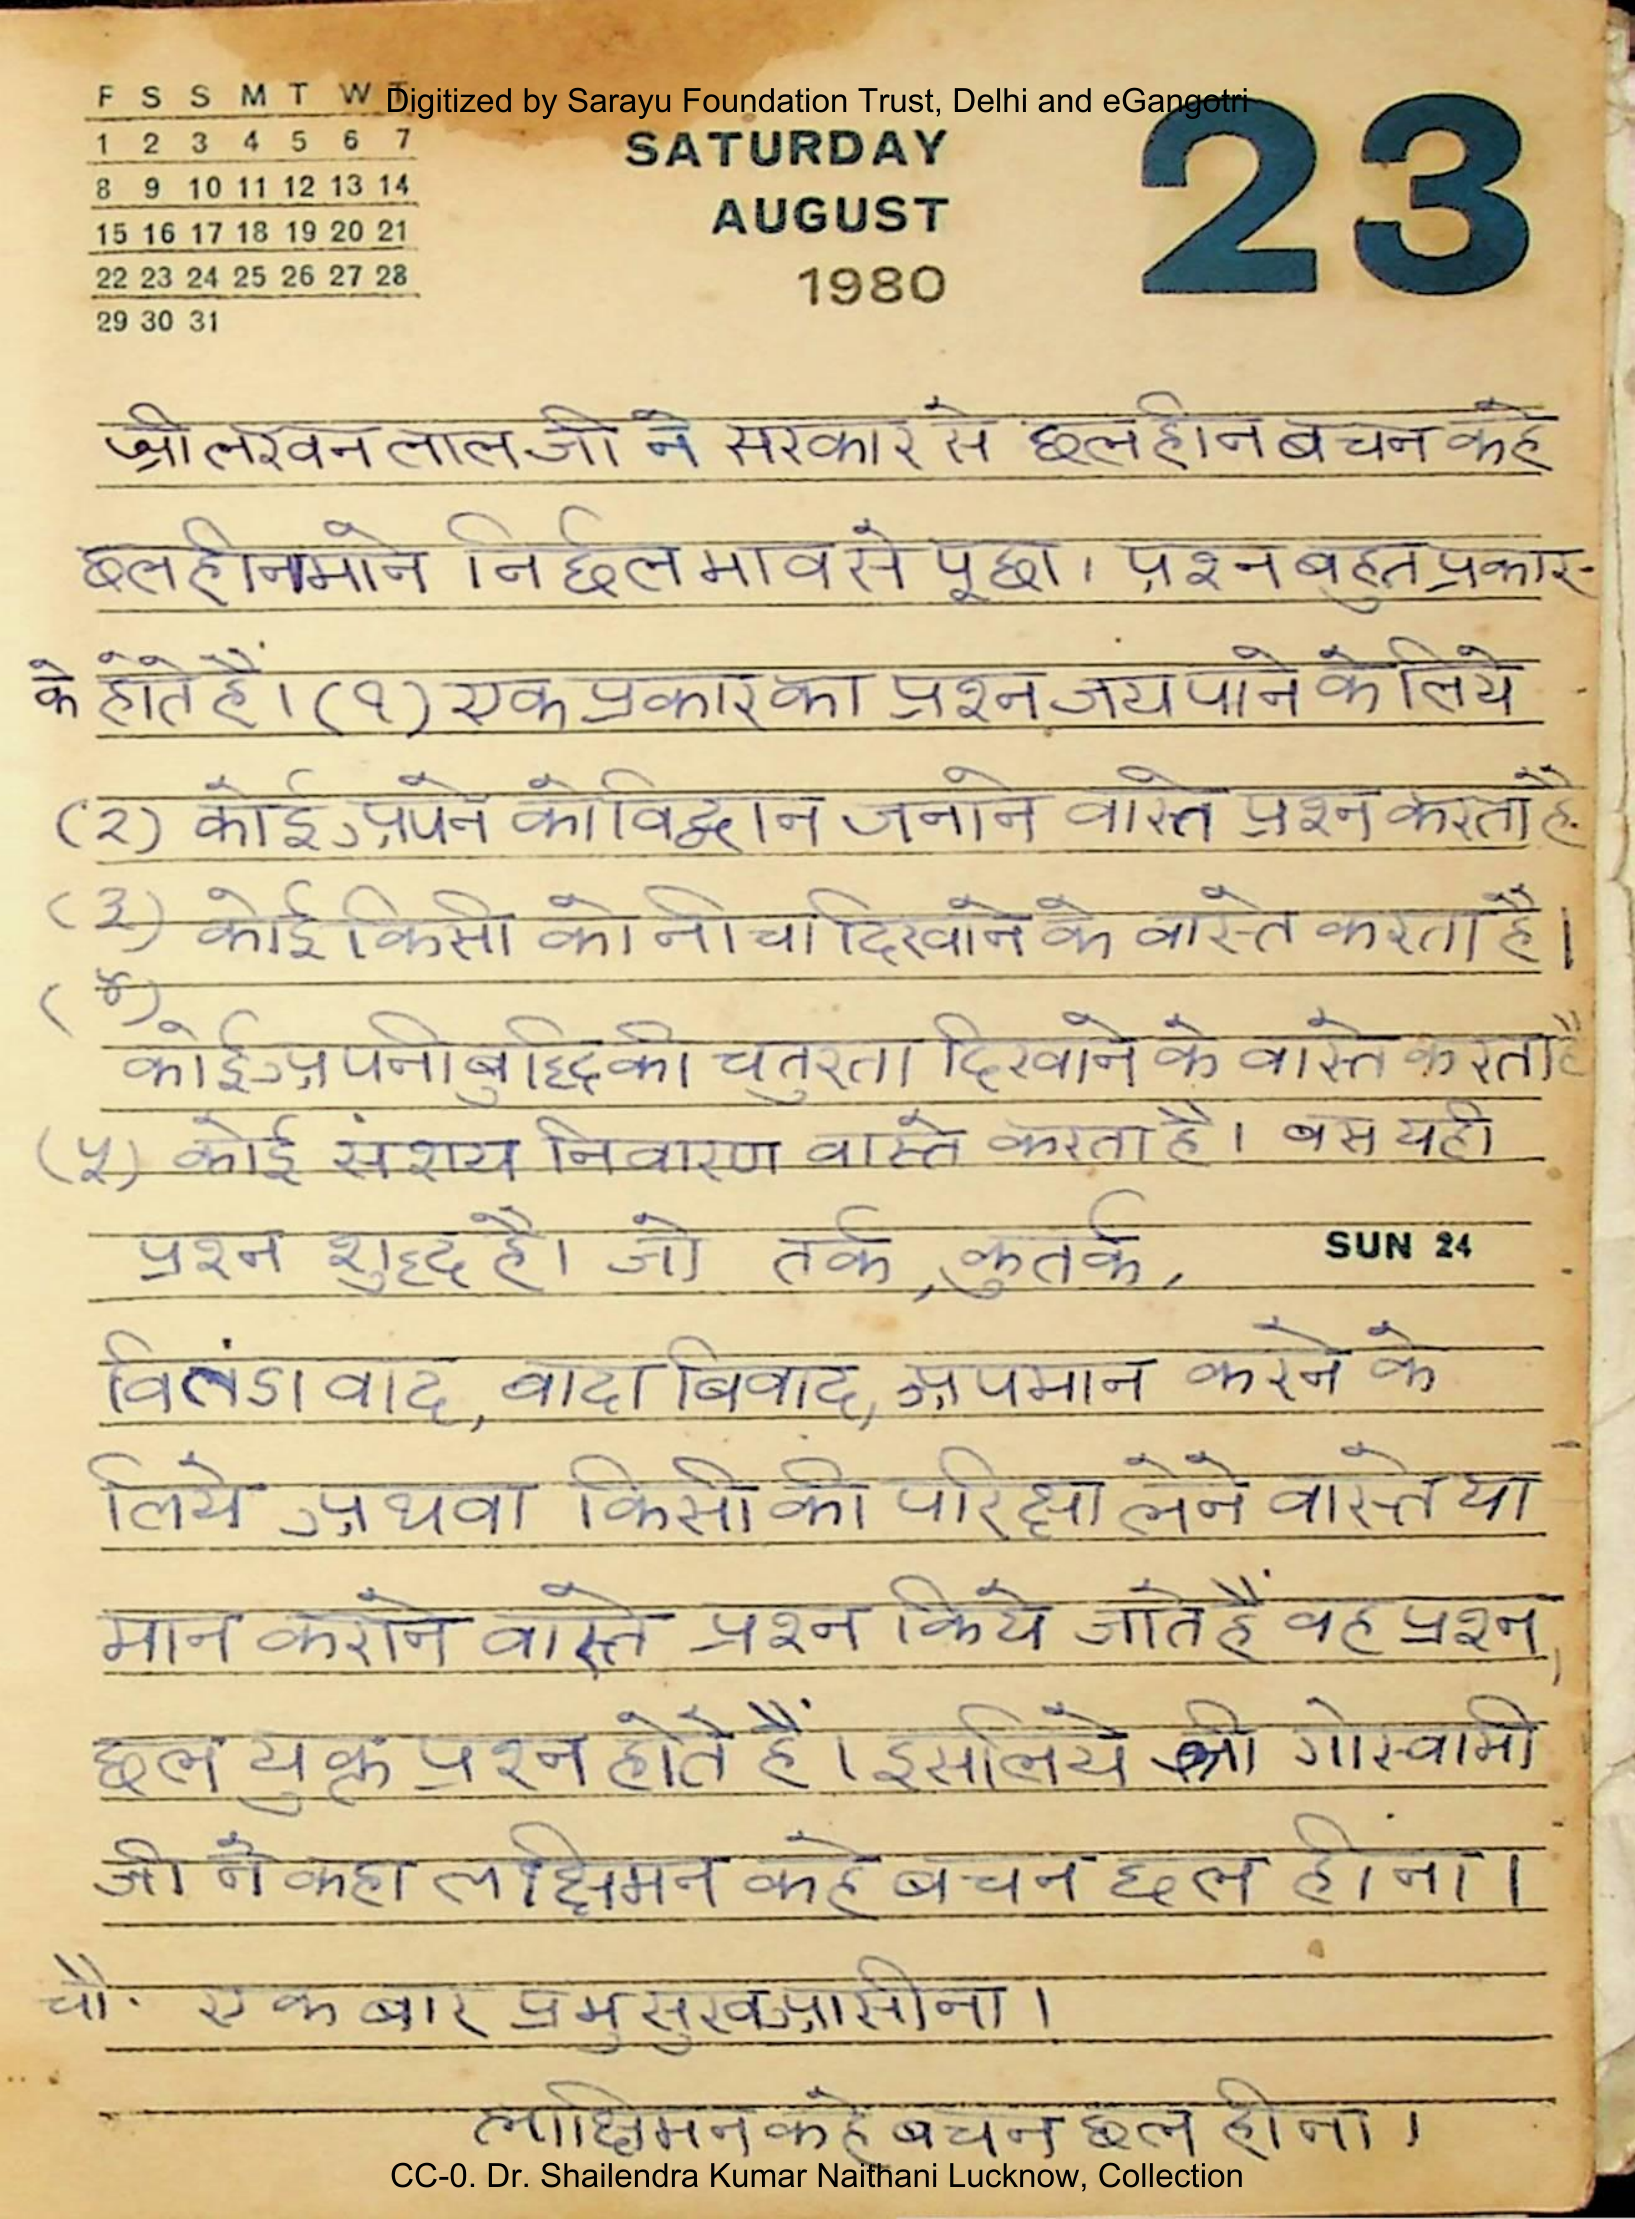 F S S M T W T
Digitized by Sarayu Foundation Trust, Delhi and eGangotri
1 2 3 4 5 6 7
8 9 10 11 12 13 14
15 16 17 18 19 20 21
22 23 24 25 26 27 28
29 30 31
SATURDAY
AUGUST
1980
23
श्री लखन लाल जी ने सरकार से छल हीन बचन कहे
छल हीन माने निर्छल भाव से पूछा। प्रश्न बहुत प्रकार-
के होते हैं। (१) एक प्रकार का प्रश्न जय पाने के लिये
(२) कोई अपने को विद्वान जनाने वास्ते प्रश्न करता है
(३) कोई किसी को नीचा दिखाने के वास्ते करता है।
(४)
कोई अपनी बुद्धि की चतुरता दिखाने के वास्ते करता है
(५) कोई संशय निवारण वास्ते करता है। बस यही
प्रश्न शुद्ध है। जो तर्क, कुतर्क,
SUN 24
वितंडा वाद, बादा बिवाद, अपमान करने के
लिये अथवा किसी की परिक्षा लेने वास्ते या
मान कराने वास्ते प्रश्न किये जाते हैं वह प्रश्न,
छल युक्त प्रश्न होते हैं। इसलिये श्री गोस्वामी
जी ने कहा लछिमन कहे बचन छल हीना।
चौ. एक बार प्रभु सुख आसीना।
लछिमन कहे बचन छल हीना।
CC-0. Dr. Shailendra Kumar Naithani Lucknow, Collection